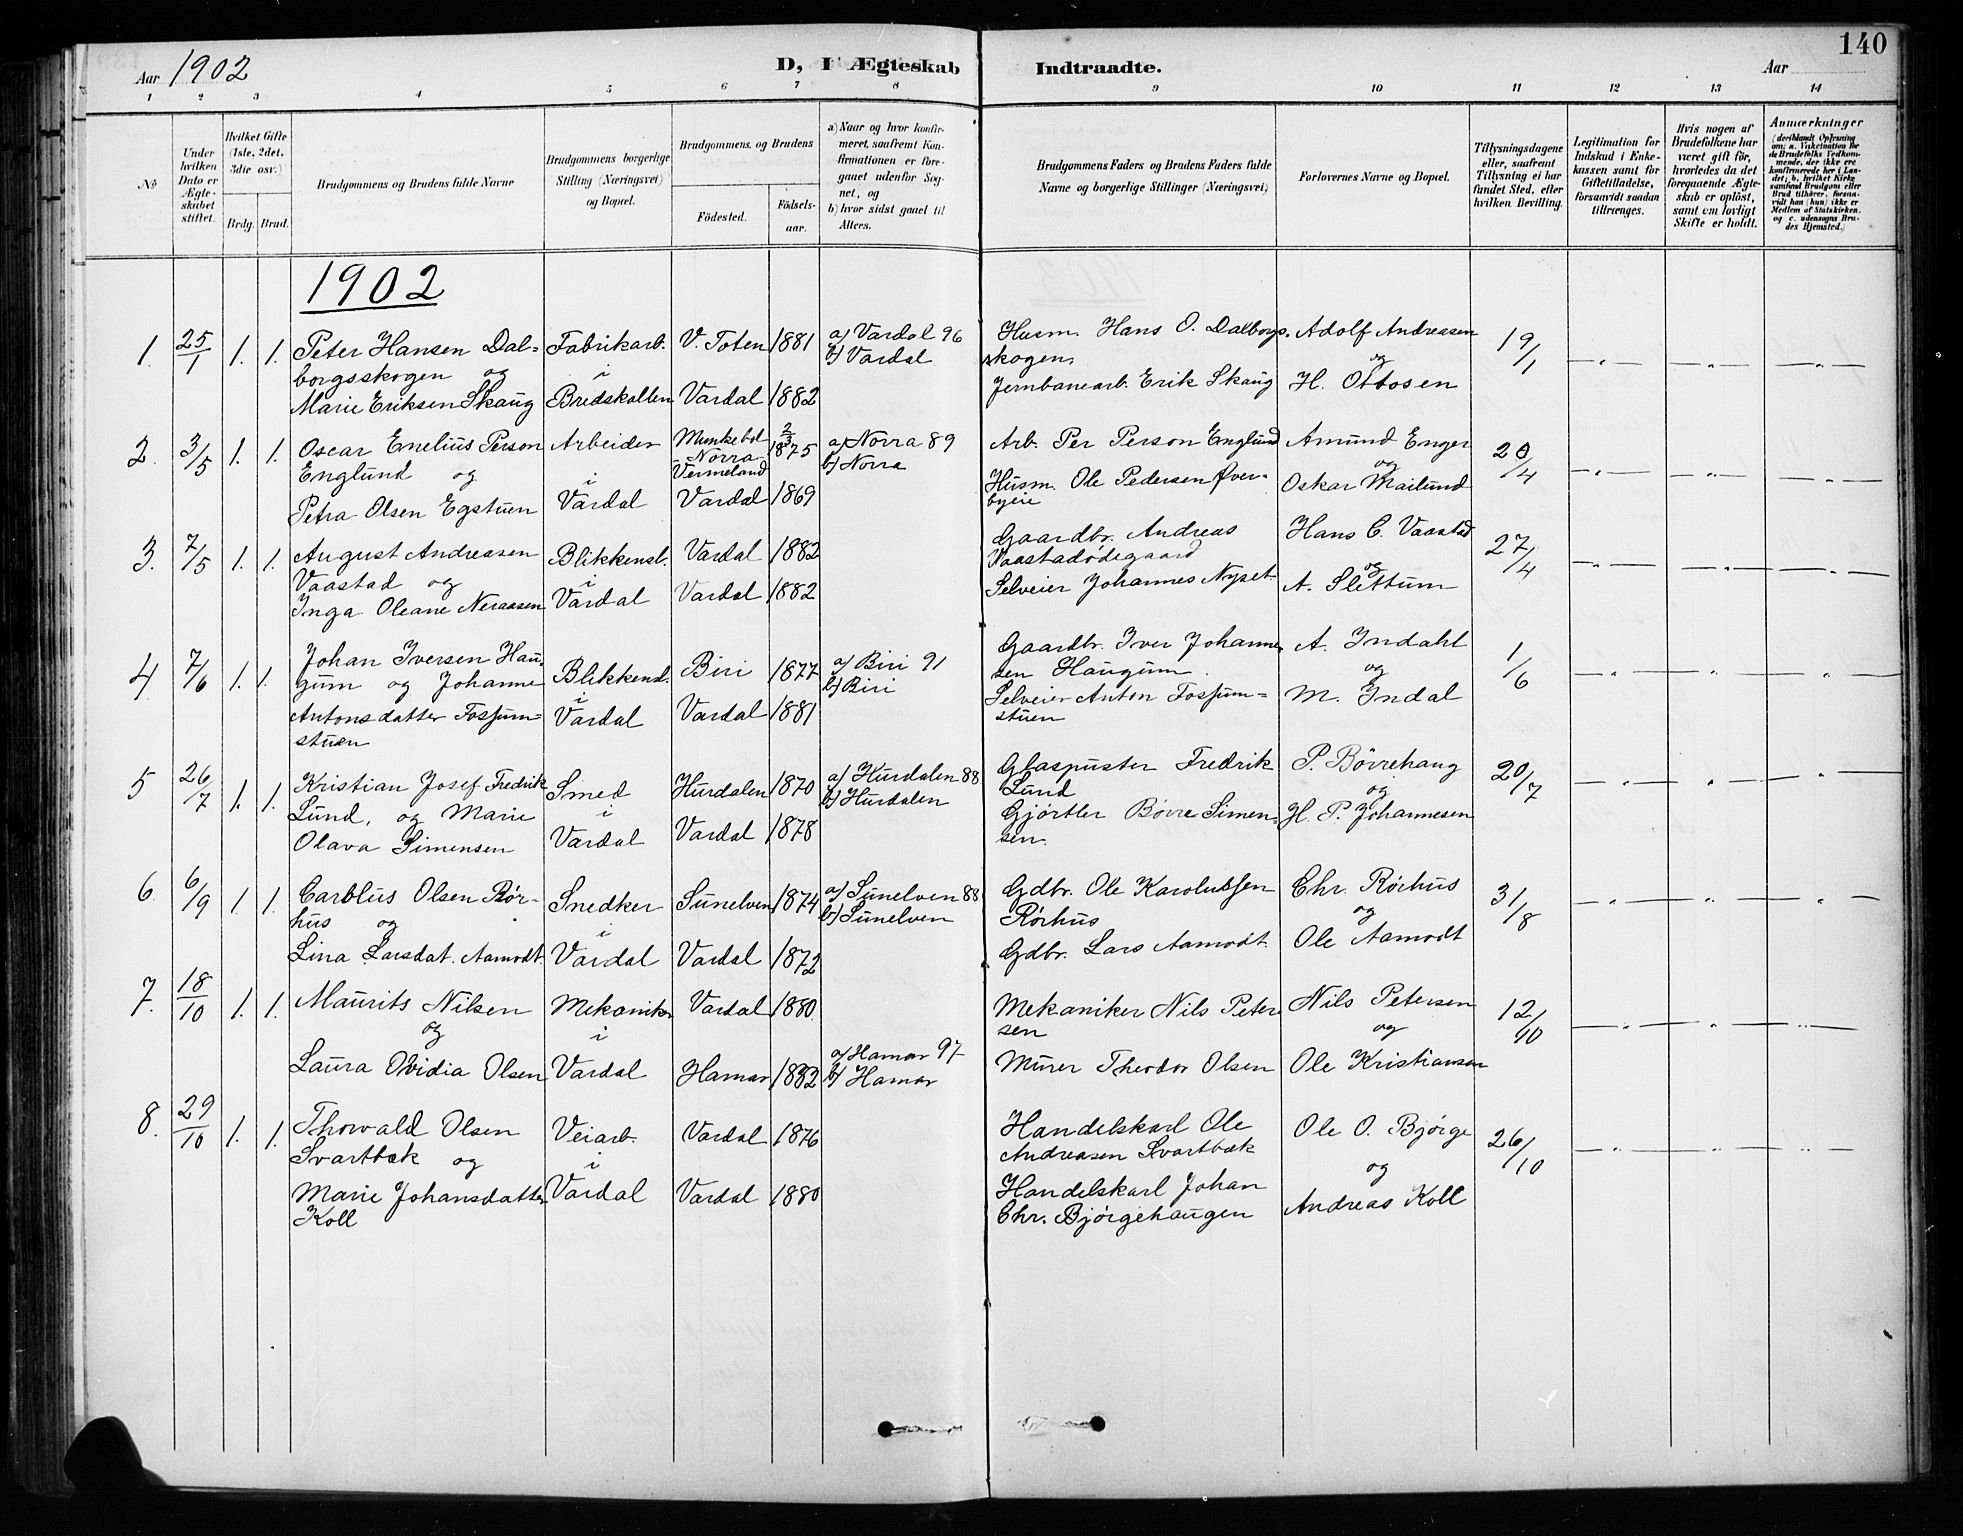 140
Aar 1902
D, I Ægteskab Indtraadte.
Aar
1 2 3 4 5 6 7 8 9 10 11 12 13 14
No
Under hvilken Dato er Ægteskabet stiftet.
Hvilket Gifte (1ste, 2det, 3die osv.)
Brdg. Brud.
Brudgommens og Brudens fulde Navne
Brudgommens borgerlige Stilling (Næringsvei) og Bopæl.
Brudgommens og Brudens
Födested.
Födsels-aar.
a) Naar og hvor konfirmeret, saafremt Konfirmationen er foregaaet udenfor Sognet, og
b) hvor sidst gaaet til Alters.
Brudgommens Faders og Brudens Faders fulde Navne og borgerlige Stillinger (Næringsvei)
Forlovernes Navne og Bopæl.
Tillysningsdagene eller, saafremt Tillysning ei har fundet Sted, efter hvilken Bevilling.
Legitimation for Indskud i Enkekassen samt for Giftetilladelse, forsaavidt saadan tiltrænges.
Hvis nogen af Brudefolkene har været gift för, hvorledes da det foregaaende Ægteskab er oplöst, samt om lovligt Skifte er holdt.
Anmærkninger
(deriblandt Oplysning om: a. Vakcination for de Brudefolks Vedkommende, der ikke ere konfirmerede her i Landet; b. hvilket Kirkesamfund Brudgom eller Brud tilhörer, forsaavidt han (hun) ikke er Medlem af Statskirken, og c. udensogns Brudes Hjemsted.)
1902
1. 25/1 1. 1. Peter Hansen Dal- Fabrikarb. V. Toten 1881 a) Vardal 96 Husm. Hans O. Dalborgs- Adolf Andreasen 19/1
borgsskogen og i b) Vardal skogen, og
Marie Eriksen Skaug Bredskallen Vardal 1882 Jernbanearb. Erik Skaug H. Ottosen
2. 3/5 1. 1. Oscar Enelius Person Arbeider Munkebol 2/3 1875 a) Norra 89 Arb. Per Person Englund Amund Enger 20/4
Englund og i Norra Vermeland b) Norra Husm. Ole Pedersen Øver- og
Petra Olsen Egstuen Vardal Vardal 1869 byeie Oskar Mailund
3. 7/5 1. 1. August Andreasen Blikkensl. Vardal 1882 Gaardbr. Andreas Hans C. Vaastad 27/4
Vaastad og i Vaastadødegaard og
Inga Oleane Neraasen Vardal Vardal 1882 Selveier Johannes Nyset A. Slettum
4 7/6 1. 1. Johan Iversen Hau- Blikkensl. Biri 1877 a) Biri 91 Gaardbr. Iver Johanne- A. Indahl 1/6
gum og Johanne i b) Biri sen Haugum og
Antonsdatter Fossum- Vardal Vardal 1881 Selveier Anton Fossum- M. Indal
stuen stuen
5 26/7 1. 1. Kristian Josef Fredrik Smed Hurdalen 1870 a) Hurdalen 88 Glaspuster Fredrik P. Børrehaug 20/7
Lund, og Marie i b) Hurdalen Lund og
Olava Simensen Vardal Vardal 1878 Gjørtler Børre Simen- H. P. Johannesen
sen.
6. 6/9 1. 1. Carolus Olsen Rør- Snedker Sunelven 1874 a) Sunelven 88 Gdbr. Ole Karolussen Chr. Rørhus 31/8
hus og i b) Sunelven Rørhus og
Lina Larsdat. Aamodt. Vardal Vardal 1872 Gdbr. Lars Aamodt. Ole Aamodt
7. 18/10 1. 1. Maurits Nilsen Mekaniker Vardal 1880. Mekaniker Nils Peter- Nils Petersen 12/10
og i sen og
Laura Ovidia Olsen Vardal Hamar 1882 a) Hamar 97 Murer Theodor Olsen Ole Kristiansen
b) Hamar
8. 29/10 1. 1. Thorvald Olsen Veiarb. Vardal 1876 Handelskarl Ole Ole O. Bjørge 26/10
Svartbæk og i Andreasen Svartbæk og
Marie Johansdatter Vardal Vardal 1880 Handelskarl Johan Andreas Koll
Koll Chr. Bjørgehaugen